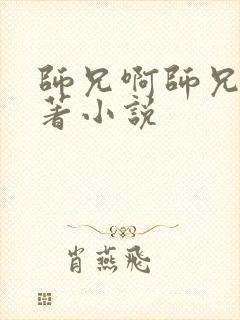 師兄啊師兄
著小説
肖燕飛